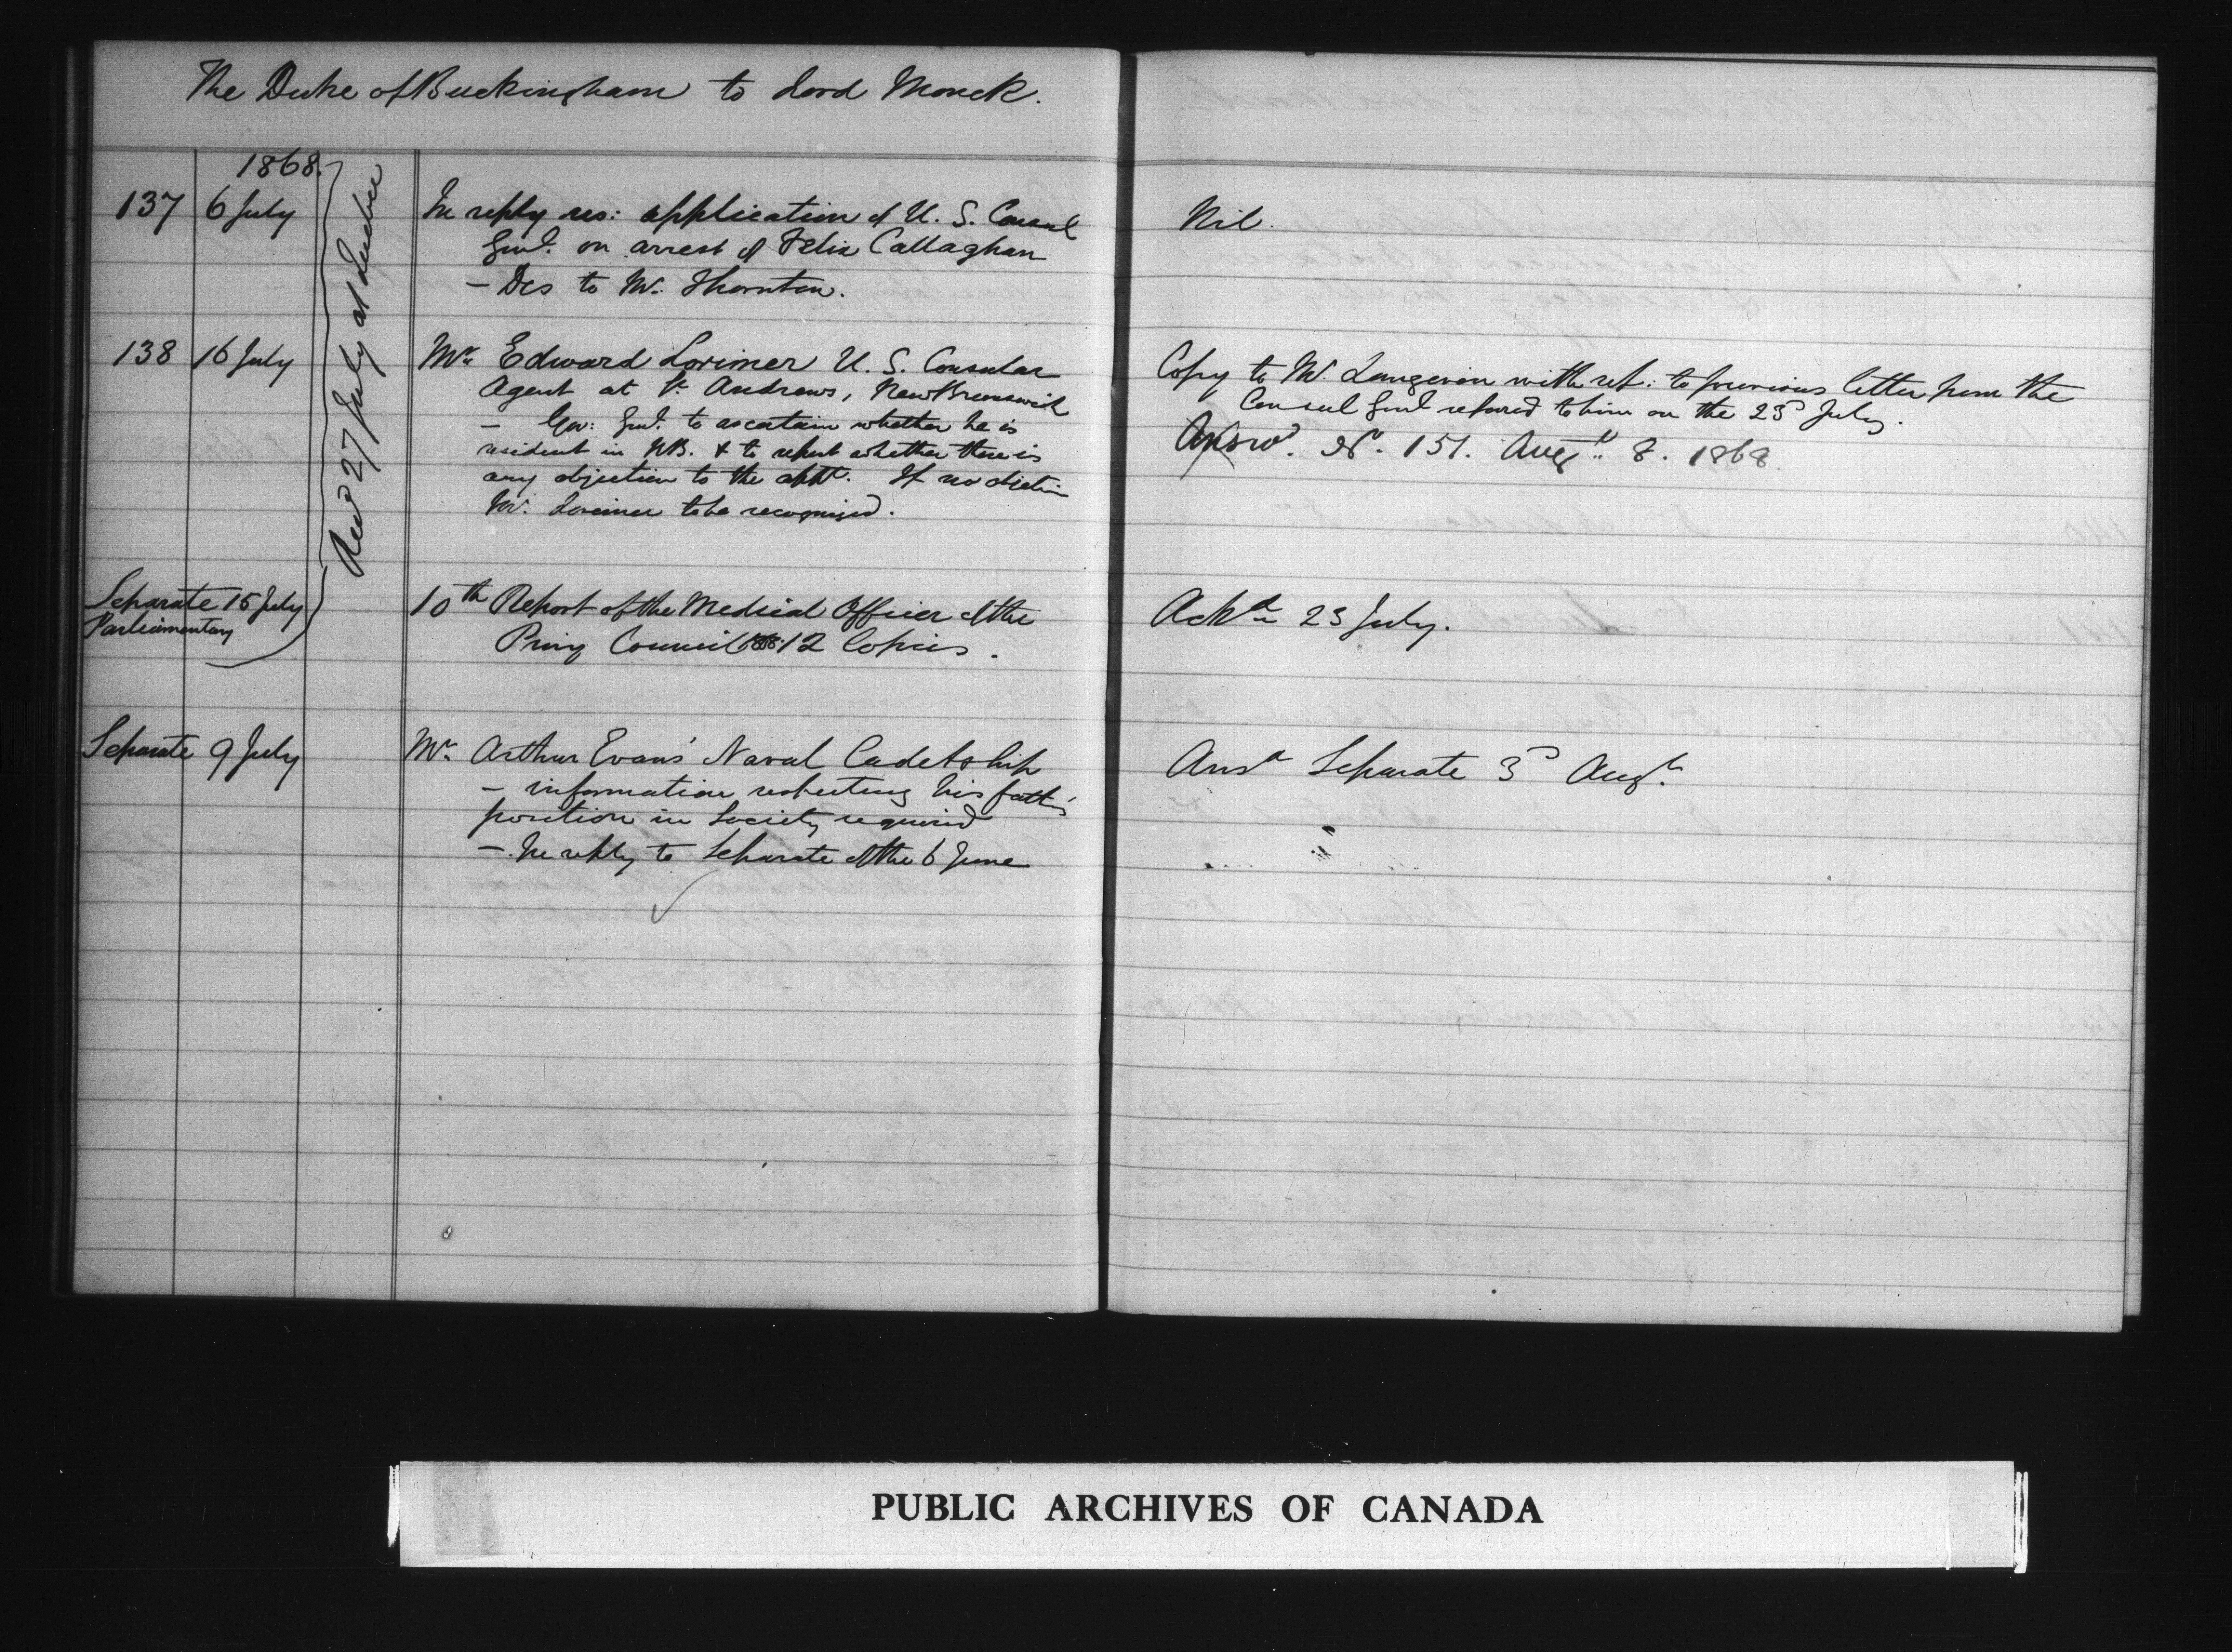 The Duke of Buckingham to Lord Monck.
1868.
Recd 27 July at Quebec
137 6 July In reply res: application of U. S. Consul
Genl. on arrest of Felix Callaghan
- Des to Mr. Thornton.
Nil.
138 16 July Mr. Edward Lorimer U. S. Consular
Agent at St. Andrews, New Brunswick
- Gov: Genl. to ascertain whether he is
resident in NB. & to report whether there is
any objection to the appt. If no objection
Mr. Lorimer to be recognised.
Copy to Mr. Langevin with ref: to previous letter from the
Consul Genl refered to him on the 23d July.
Answd. No. 151. Augt. 8. 1868.
Separate 15 July
Parliamentary
10th Report of the Medical Officer of the
Privy Council 12 Copies.
Ackd 23 July.
Separate 9 July Mr. Arthur Evans' Naval Cadetship
- information respecting his father's
position in Society required
- In reply to Separate of the 6 June
Ansd Separate 3d Augt.
PUBLIC ARCHIVES OF CANADA